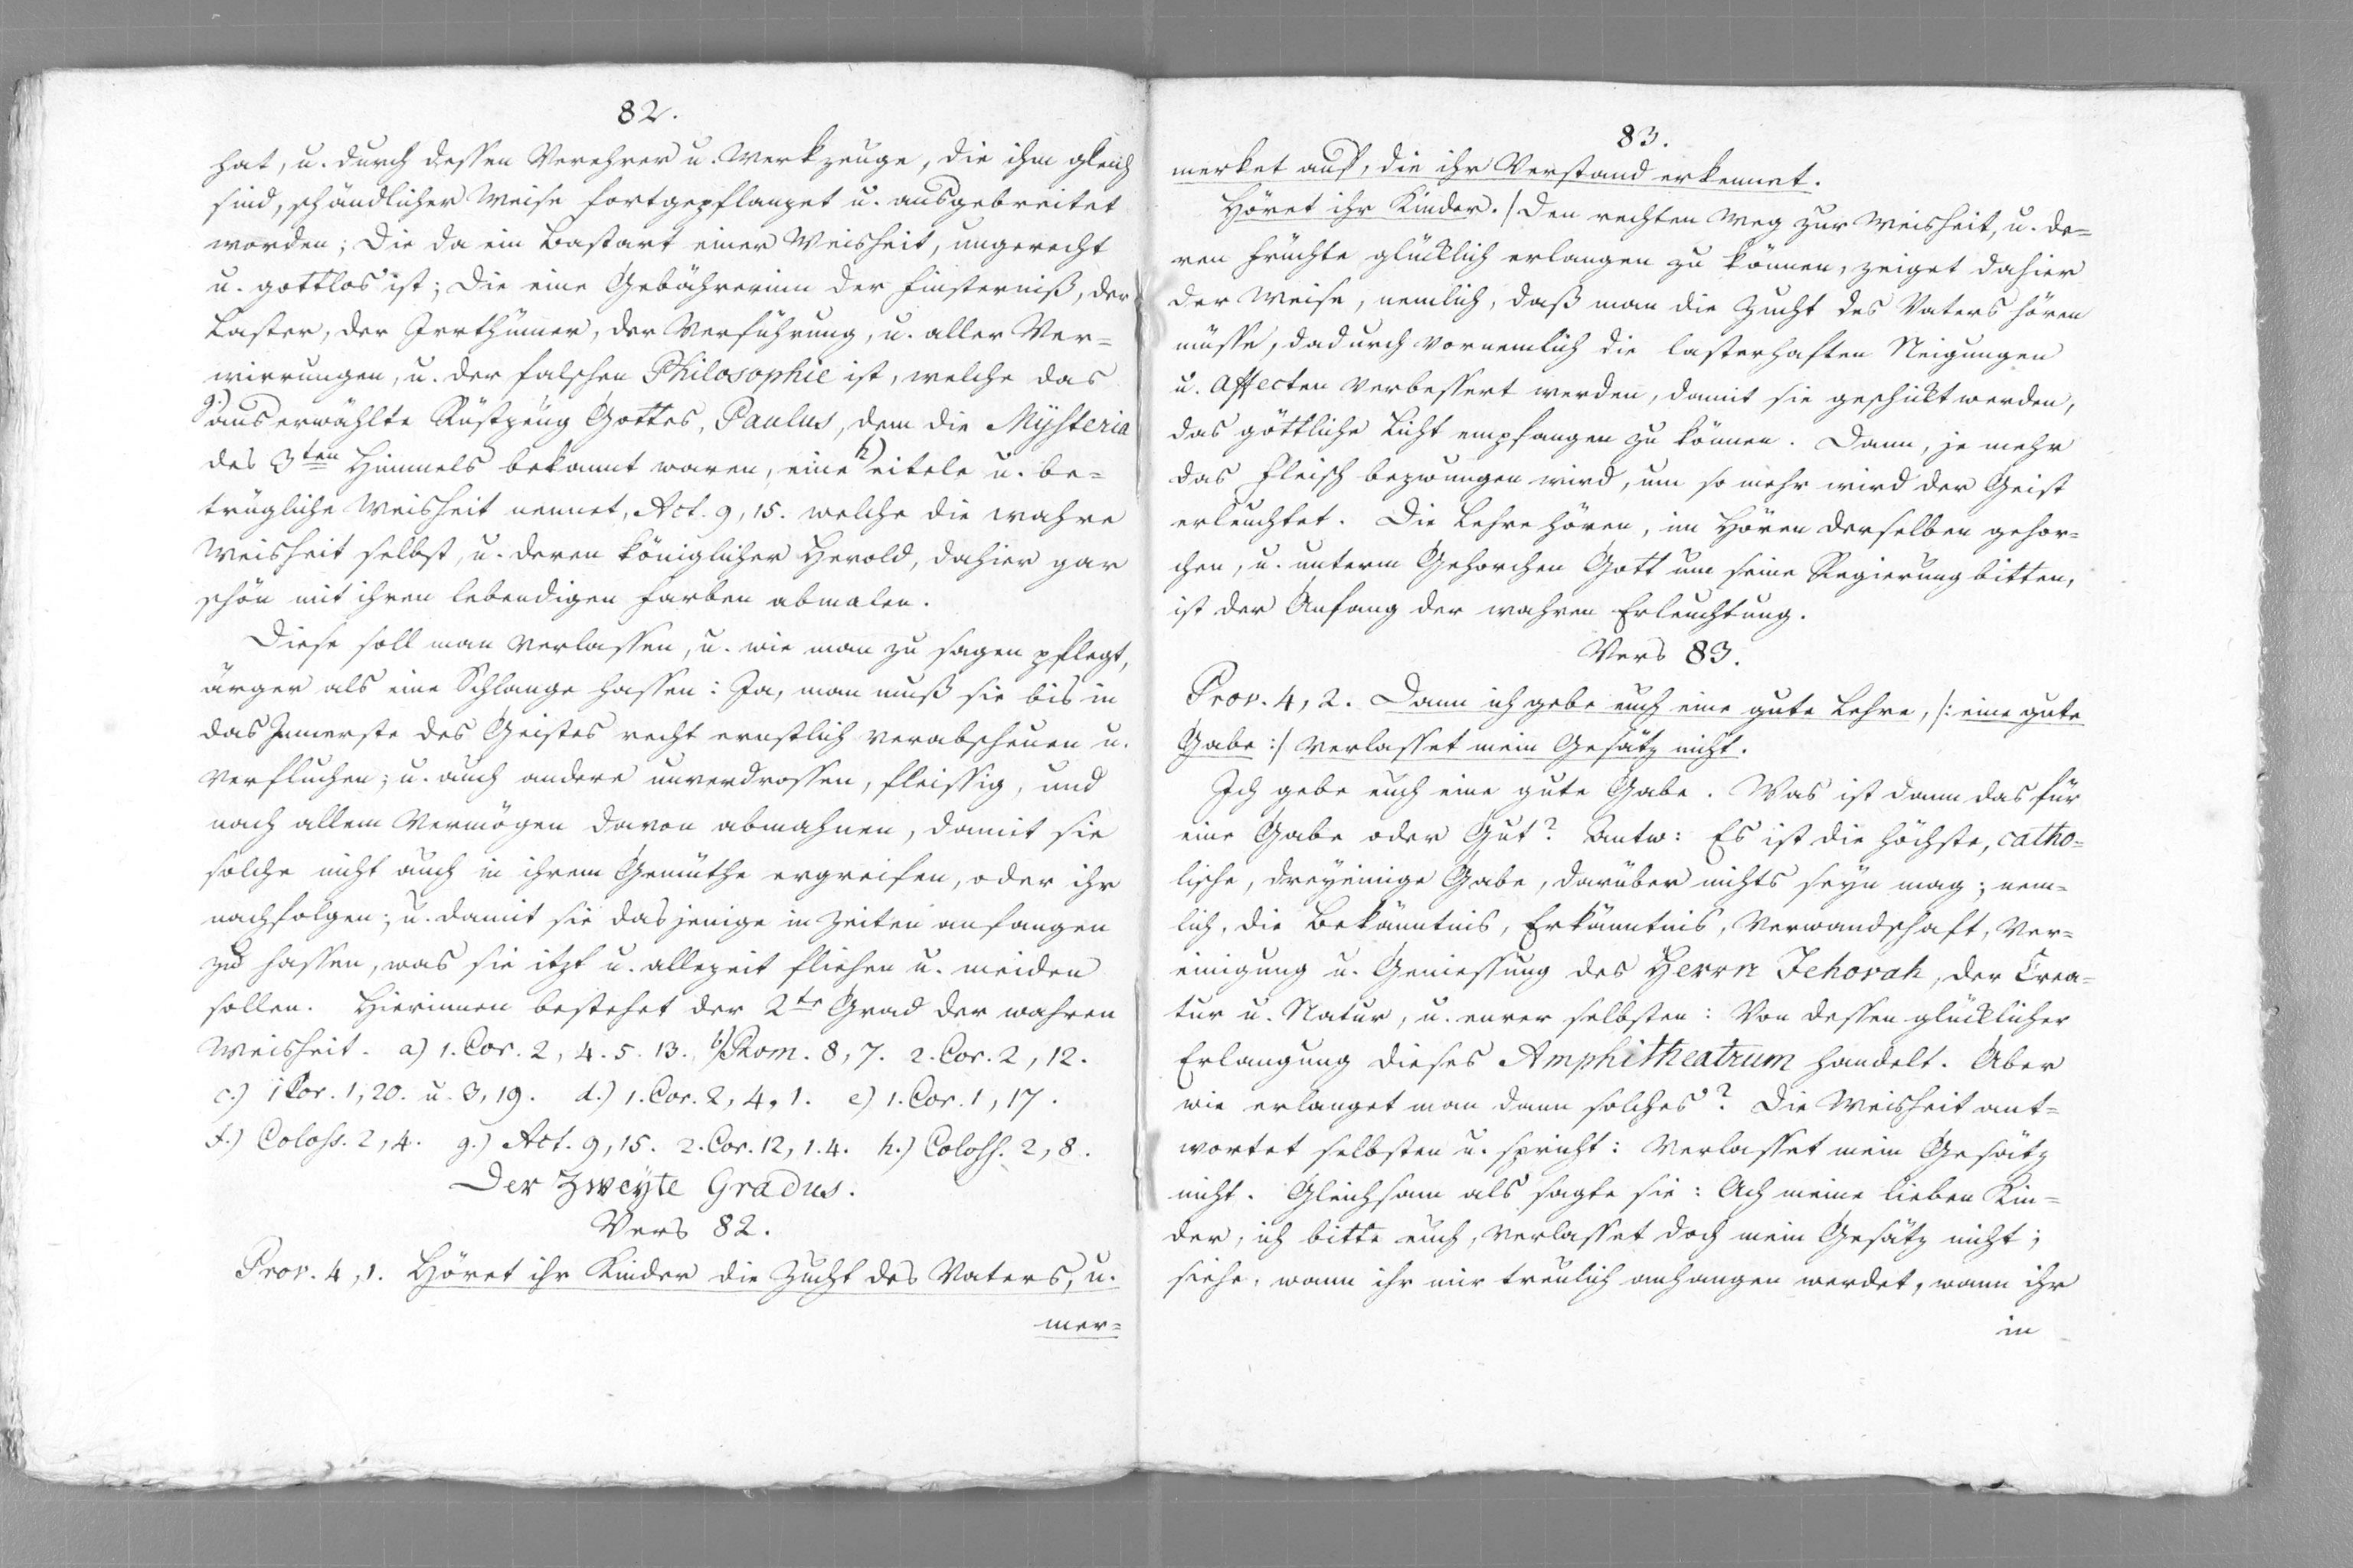 82.
hat, u. durch dessen Verehrer u. Werkzeuge, die ihm gleich
sind, schändlicher Weise fortgepflanzet u. ausgebreitet
worden; Die da ein Bastart einer Weisheit, ungerecht
u. gottlos ist; Die eine Gebährerinn der Finsterniß, der
Laster, der Irrthümer, der Verführung, u. aller Ver=
wirrungen, u. der falschen Philosophie ist, welche das
g.) auserwählte Rüstzeug Gottes, Paulus, dem die Mysteria
des 3ten Himmels bekannt waren, eine h) eitele u. be=
trügliche Weisheit nennet, Act. 9, 15. welche die wahre
Weisheit selbst, u. deren königlicher Herold, dahier gar
schön mit ihren lebendigen Farben abmalen.
Diese soll man verlassen, u. wie man zu sagen pflegt,
ärger als eine Schlange hassen: Ja, man muß sie bis in
das Innerste des Geistes recht ernstlich verabscheuen u.
verfluchen; u. auch andere unverdrossen, fleissig, und
nach allem Vermögen davon abmahnen, damit sie
solche nicht auch in ihrem Gemüthe ergreifen, oder ihr
nachfolgen; u. damit sie dasjenige in Zeiten anfangen
zu hassen, was sie itzt u. allezeit fliehen u. meiden
sollen. Hierinnen bestehet der 2te Grad der wahren
Weisheit. a) 1. Cor. 2, 4. 5. 13. b) Rom. 8, 7. 2. Cor. 2, 12.
c.) 1 Cor. 1, 20. u. 3, 19. d.) 1. Cor. 2, 4, 1. e) 1. Cor. 1, 17.
f.) Coloss. 2, 4. g.) Act. 9, 15. 2. Cor. 12, 1. 4. h.) Coloss. 2, 8.
Der Zweyte Gradus.
Vers 82.
Prov. 4, 1. Höret ihr Kinder die Zucht des Vaters, u.
mer=
83.
merket auf, die ihr Verstand erkennet.
Höret ihr Kinder. / Den rechten Weg zur Weisheit, u. de=
ren Früchte glücklich erlangen zu können, zeiget dahier
der Weise, nemlich, daß man die Zucht des Vaters hören
müsse, dadurch vornemlich die lasterhaften Neigungen
u. Affecten verbessert werden, damit sie geschickt werden,
das göttliche Licht empfangen zu können. Dann, je mehr
das Fleisch bezwungen wird, um so mehr wird der Geist
erleuchtet. Die Lehre hören, im Hören derselben gehor=
chen, u. unterm Gehorchen Gott um seine Regierung bitten,
ist der Anfang der wahren Erleuchtung.
Vers 83.
Prov. 4, 2. Dann ich gebe euch eine gute Lehre, /: eine gute
Gabe :/ verlasset mein Gesätz nicht.
Ich gebe euch eine gute Gabe. Was ist dann das für
eine Gabe oder Gut? Antw: Es ist die höchste, catho=
lische, dreyeinige Gabe, darüber nichts seyn mag; nem=
lich, die Bekäntnis, Erkäntnis, Verwandschaft, Ver=
einigung u. Geniessung des Herrn Jehovah, der Crea=
tur u. Natur, u. eurer selbsten: Von dessen glücklicher
Erlangung dieses Amphitheatrum handelt. Aber
wie erlanget man dann solches? Die Weisheit ant=
wortet selbsten u. spricht: Verlasset mein Gesätz
nicht. Gleichsam als sagte sie: Ach meine lieben Kin=
der, ich bitte euch, verlasset doch mein Gesätz nicht;
siehe, wann ihr mir treulich anhangen werdet, wann ihr
in